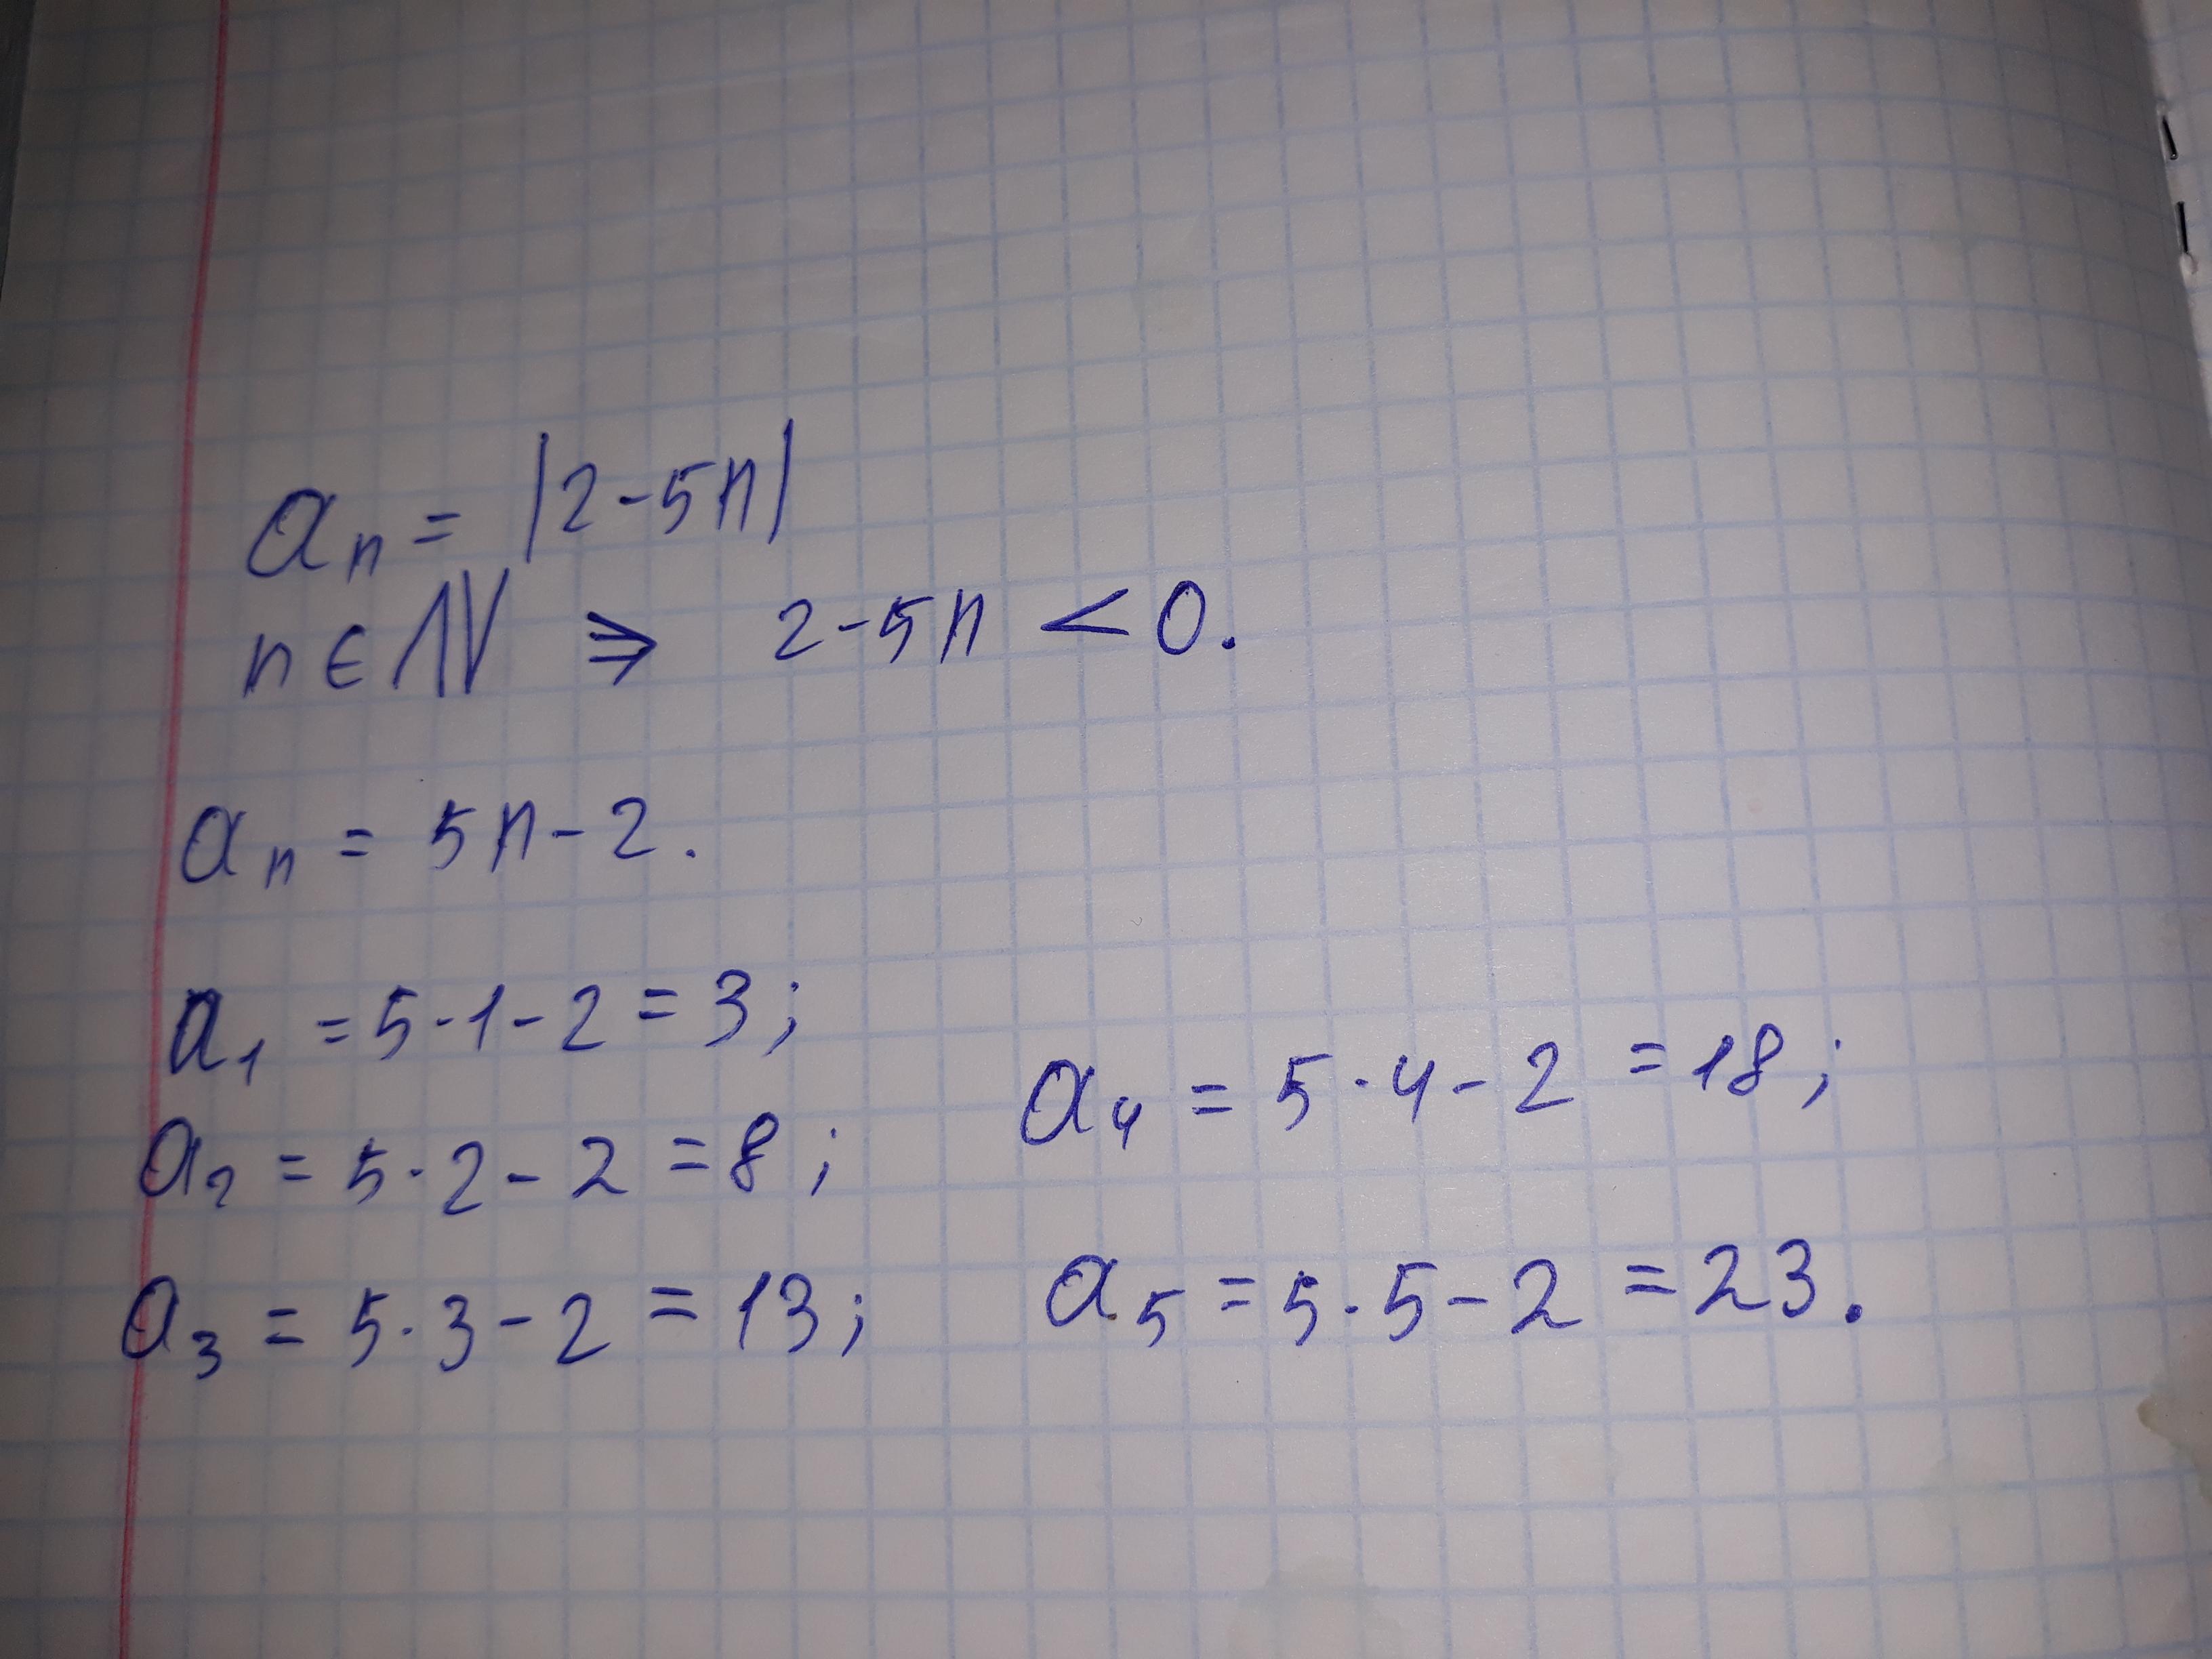 aₙ = |2-5n|
n ∈ ℕ ⇒ 2-5n < 0.
aₙ = 5n-2.
a₁ = 5·1-2 = 3;
a₂ = 5·2-2 = 8;
a₃ = 5·3-2 = 13;
a₄ = 5·4-2 = 18;
a₅ = 5·5-2 = 23.